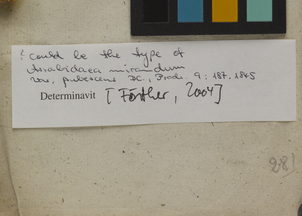 ! could be the type of
Arrabidaea mirandum
var. pubescens DC., Prodr. 9: 187. 1845
Determinavit [Förther, 2004]
28)